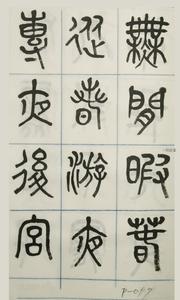 無閒暇春
從春游夜
專夜後宮
P-097